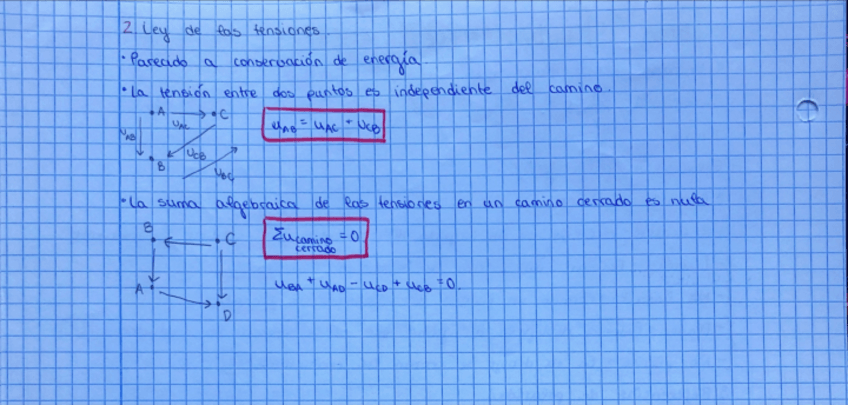 2. Ley de las tensiones.
· Parecido a conservación de energía.
· La tensión entre dos puntos es independiente del camino.
A C
uAC
uAB
uAB = uAC + uCB
uCB
B
uBC
· La suma algebraica de las tensiones en un camino cerrado es nula
B C
Σu camino cerrado = 0
uBA + uAD - uCD + uCB = 0.
A
D